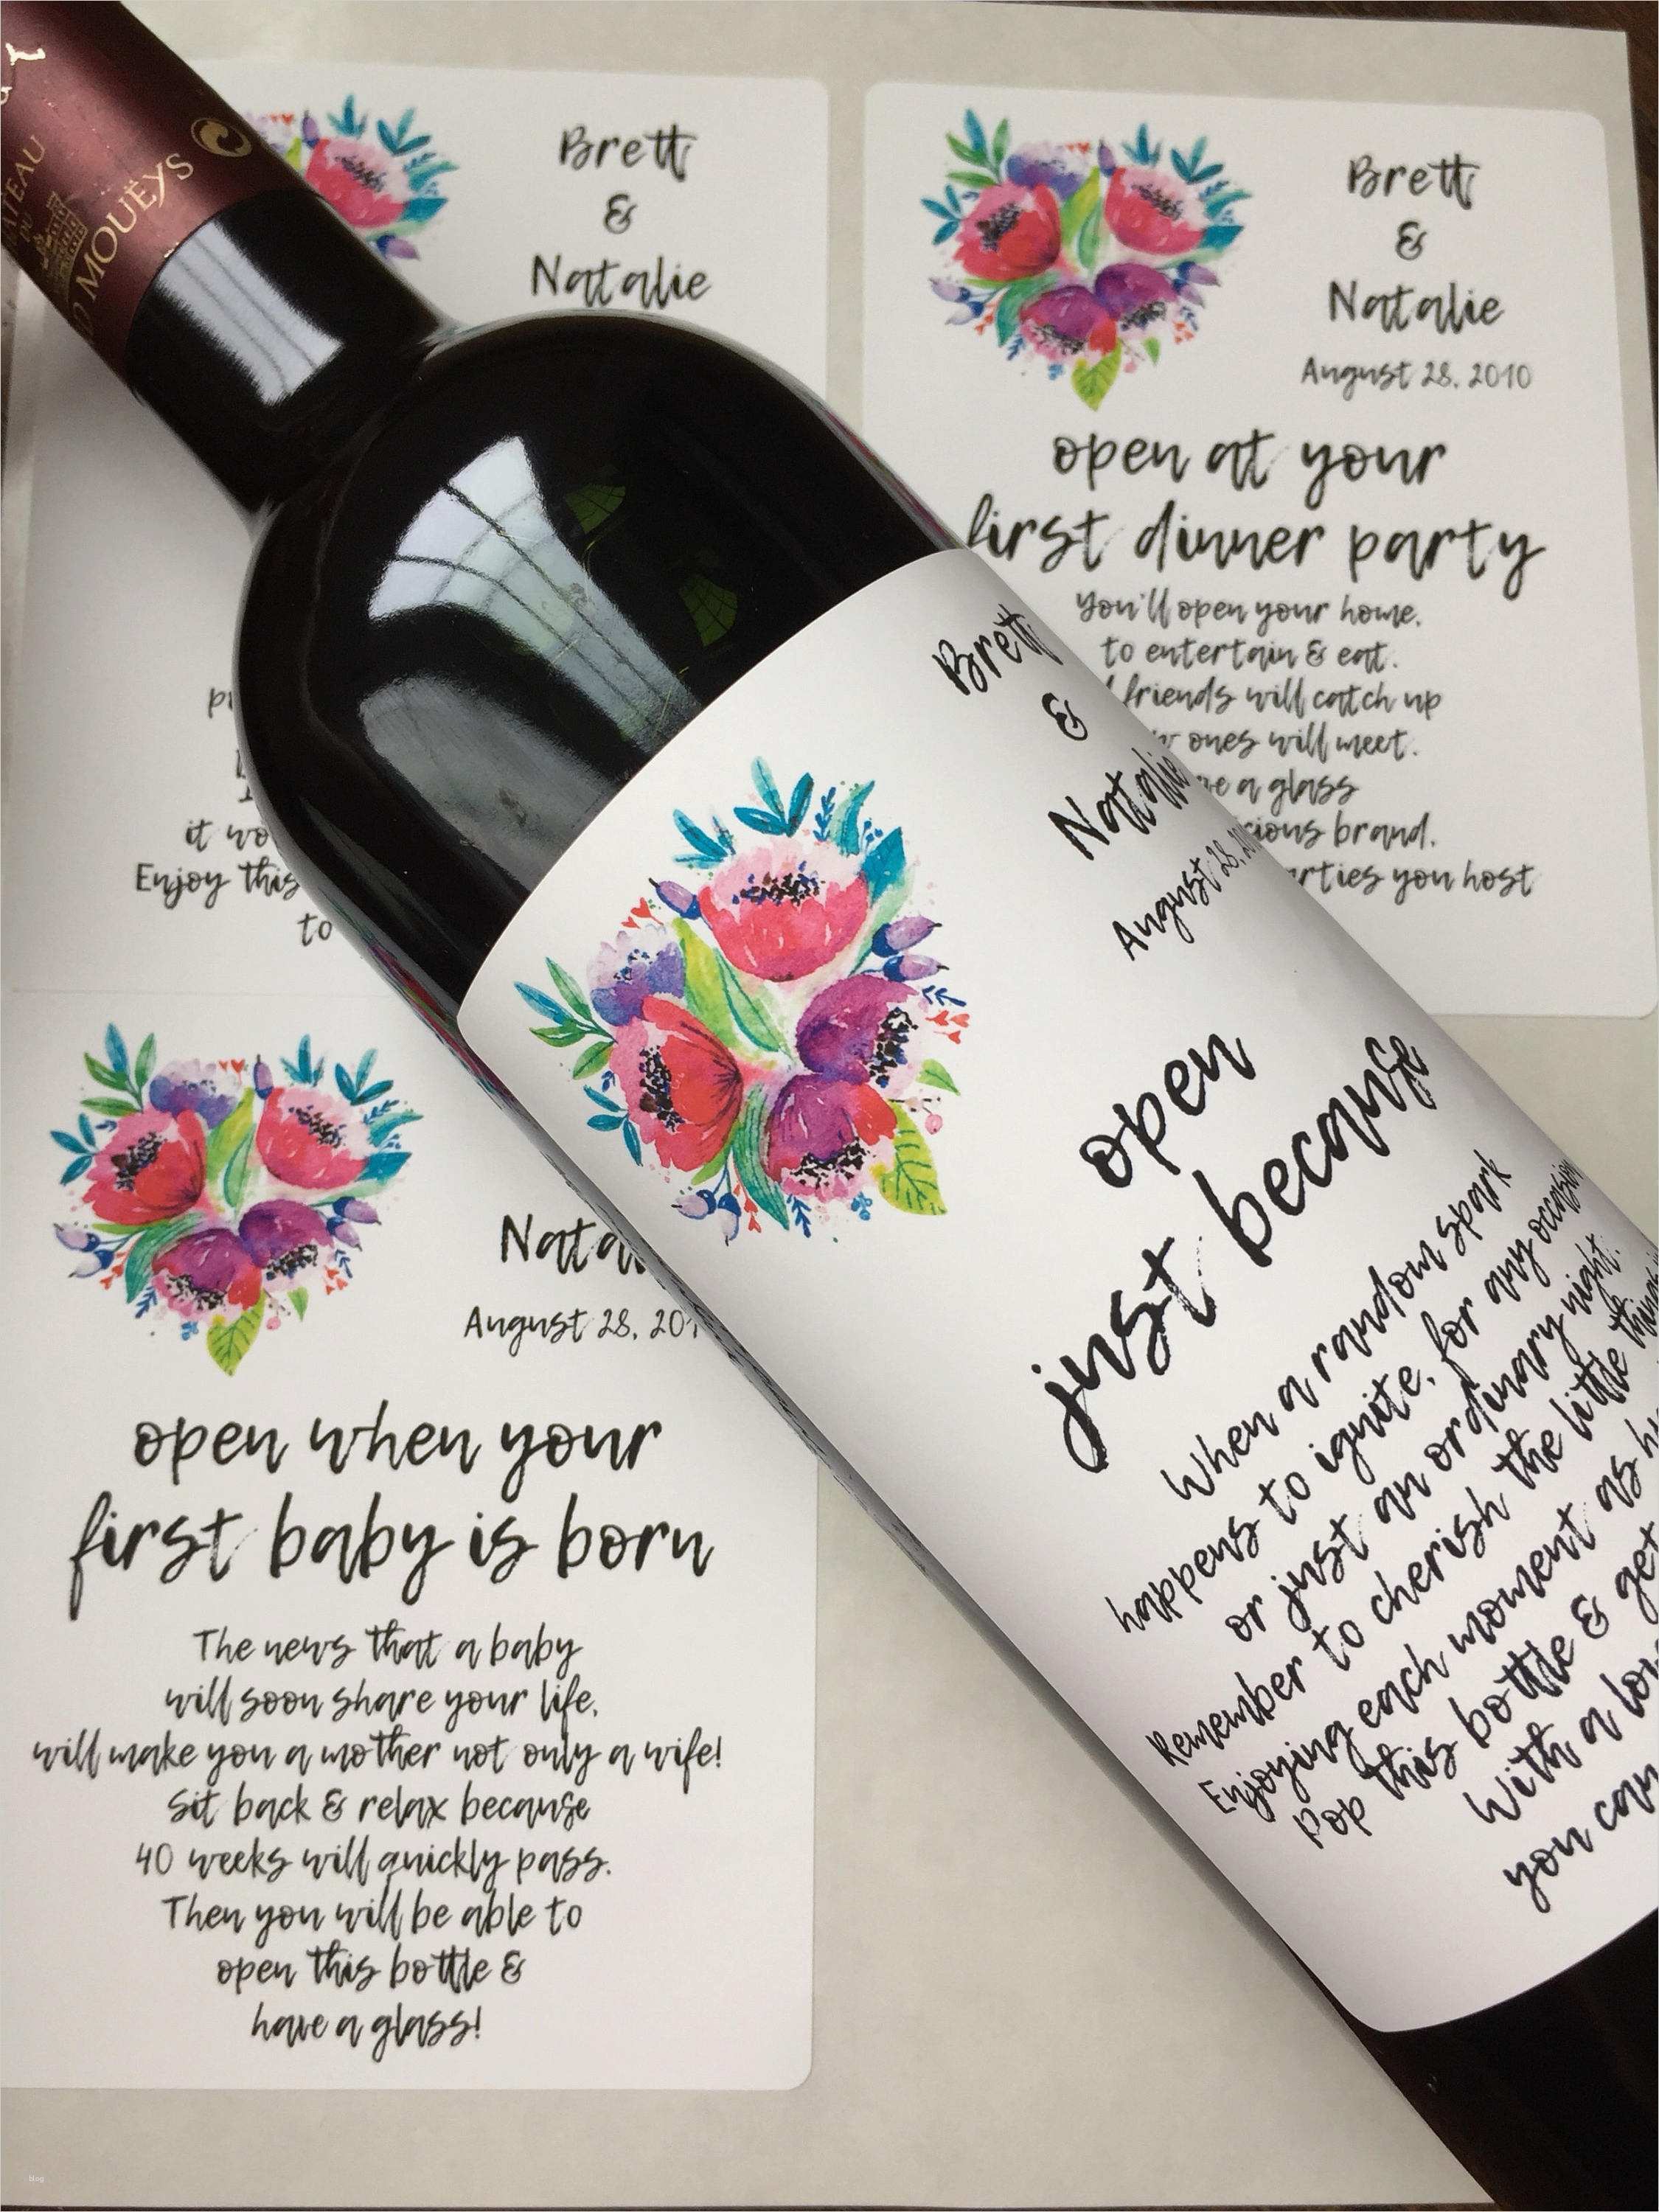 MOUËYS
Brett
&
Natalie
it
Enjoy this
to
Brett
&
Natalie
August 28, 2010
open at your
first dinner party
You'll open your home,
to entertain & eat.
friends will catch up
ones will meet.
a glass
brand.
you host
Brett
&
Natalie
August 28,
open
just because
When a random spark
happens to ignite, for any occasion
or just an ordinary night.
Remember to cherish the little things
Enjoying each moment as
Pop this bottle & get
With a
you can
August 28,
open when your
first baby is born
The news that a baby
will soon share your life,
will make you a mother not only a wife!
Sit back & relax because
40 weeks will quickly pass.
Then you will be able to
open this bottle &
have a glass!
blog